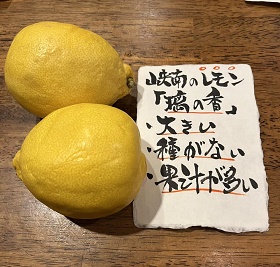 岐南のレモン
「璃の香」
・大きい
・種がない
・果汁が多い